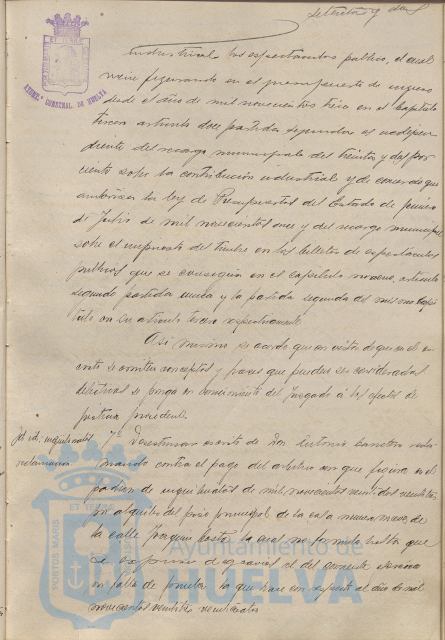 setenta y dos
industrial los espectáculos públicos, el cual
viene figurando en el presupuesto de ingresos
desde el año de mil novecientos trece en el Capítulo
tercero artículo doce partida segunda es indepen-
diente del recargo municipal del treinta y dos por
ciento sobre la contribución industrial y de comercio que
la ley de Presupuestos del Estado de primero
de Julio de mil novecientos once y del recargo municipal
sobre el impuesto del timbre en los billetes de espectáculos
públicos que se consignan en el capítulo noveno, artículo
segundo partida única y la partida segunda del mismo Capí-
tulo en su artículo tercero respectivamente.
Así mismo se acordó que en vista de que en el es-
crito se emiten conceptos y frases que pueden ser considerados
delictivos se ponga en conocimiento del Juzgado a los efectos de
justicia procedente.
Id. id. inquilinatos
reclamación
7º Desestimar escrito de Don Antonio Sanchez recla-
mando contra el pago del arbitrio con que figura en el
padrón de inquilinatos de mil novecientos veintidos veintitres
por alquiler del piso principal de la casa número nueve de
la calle Joaquín Costa la cual no formuló hasta que
se expuso
en falta de que hace con respecto al año de mil
novecientos veintitres veinticuatro
AYUNT. CONSTNAL. DE HUELVA
PORTUS MARIS
ET
Ayuntamiento de
HUELVA